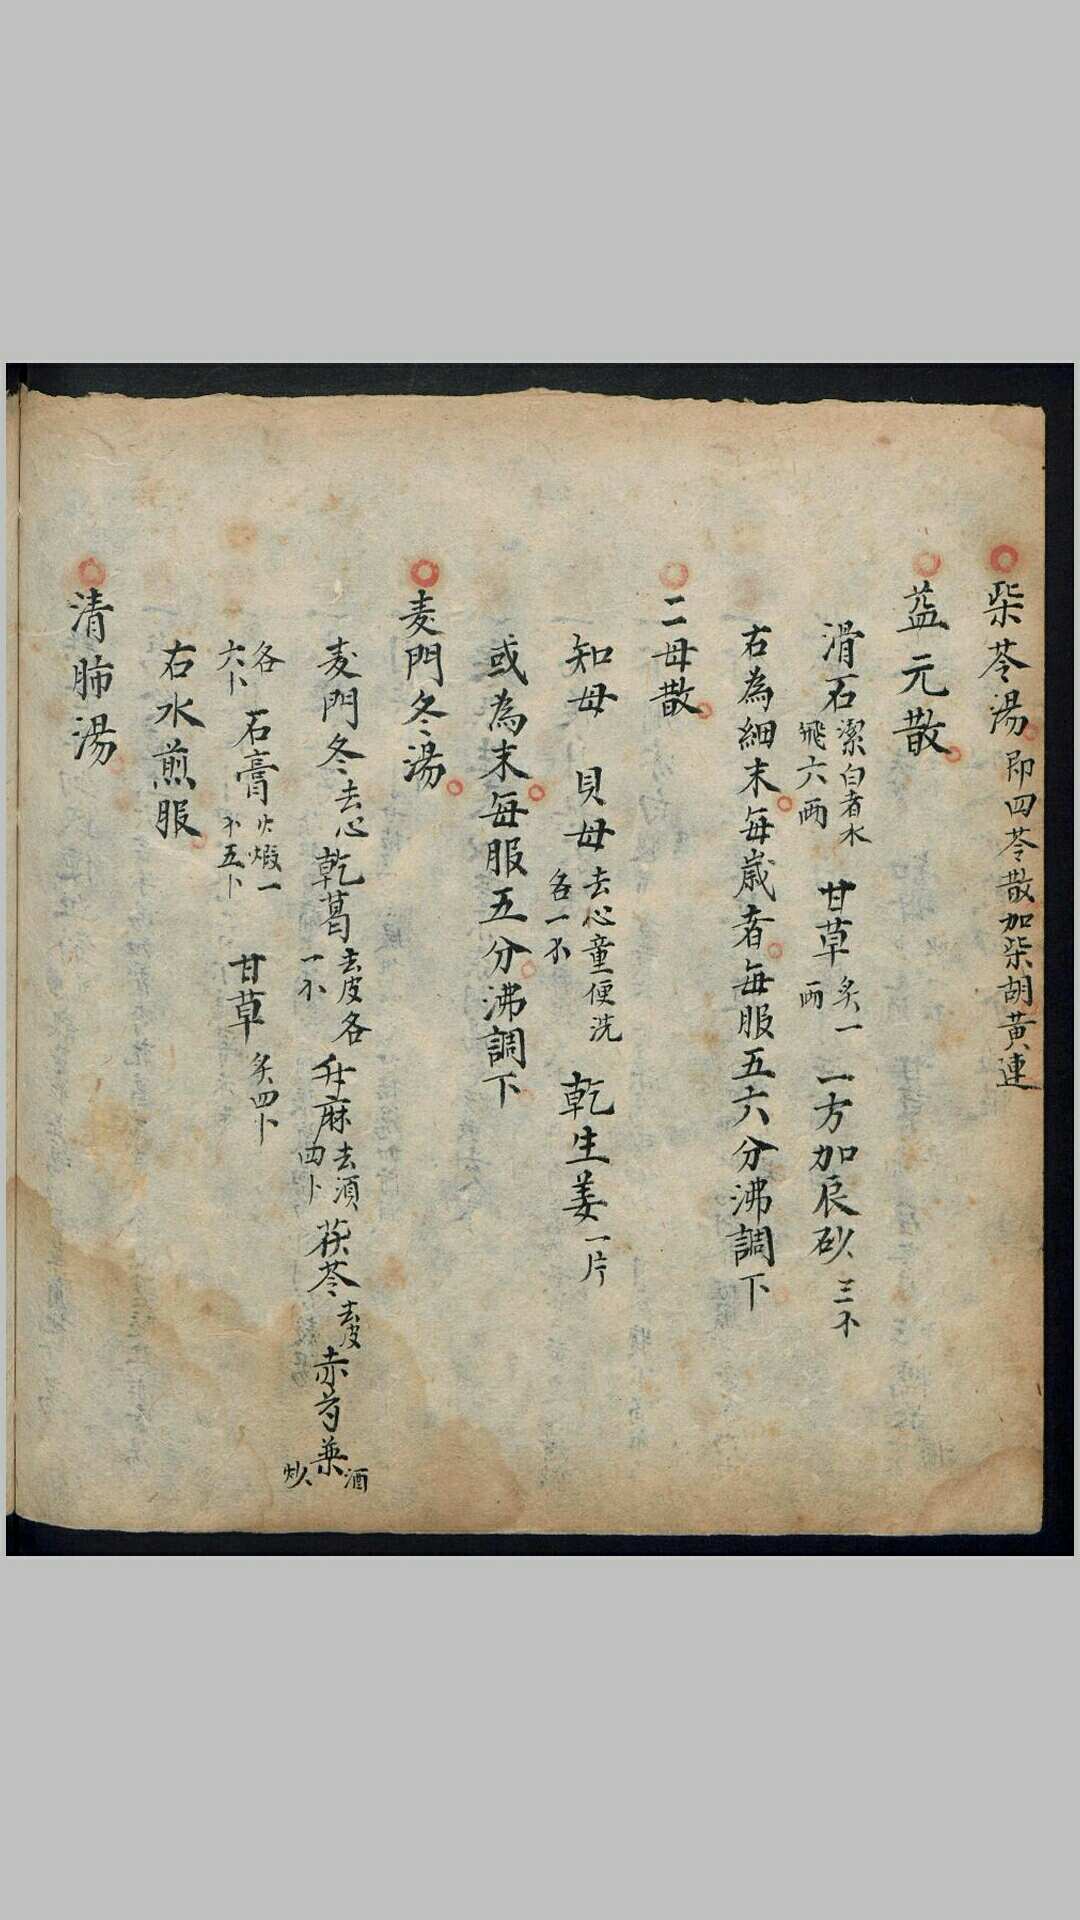 柴苓湯 即四苓散加柴胡黄連
益元散
滑石 潔白者水飛六両 甘草 炙一両 一方加辰砂 三不
右為細末每歳者每服五六分沸調下
二母散
知母 貝母 去心童便洗各一不 乾生姜 一片
或為末每服五分沸調下
麦門冬湯
麦門冬 去心 乾葛 去皮各一不 升麻 去須四卜 茯苓 去皮 赤芍薬 酒炒
各六卜 石膏 火煆一不五卜 甘草 炙四卜
右水煎服
清肺湯